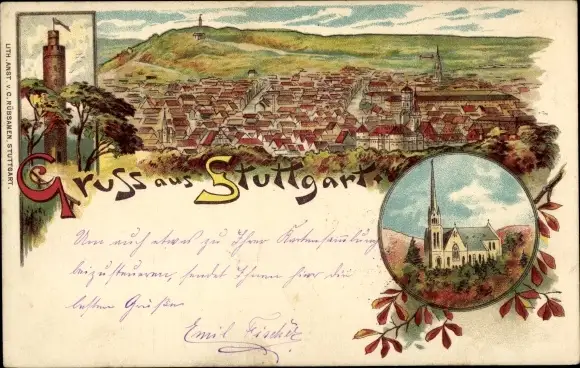 LITH. ANST. v. C. RÜBSAMEN, STUTTGART.
Gruss aus Stuttgart.
Um auch etwas zu Ihrer Kartensammlung
beizusteuern, sendet Ihnen hier die
besten Grüße
Emil Fischer